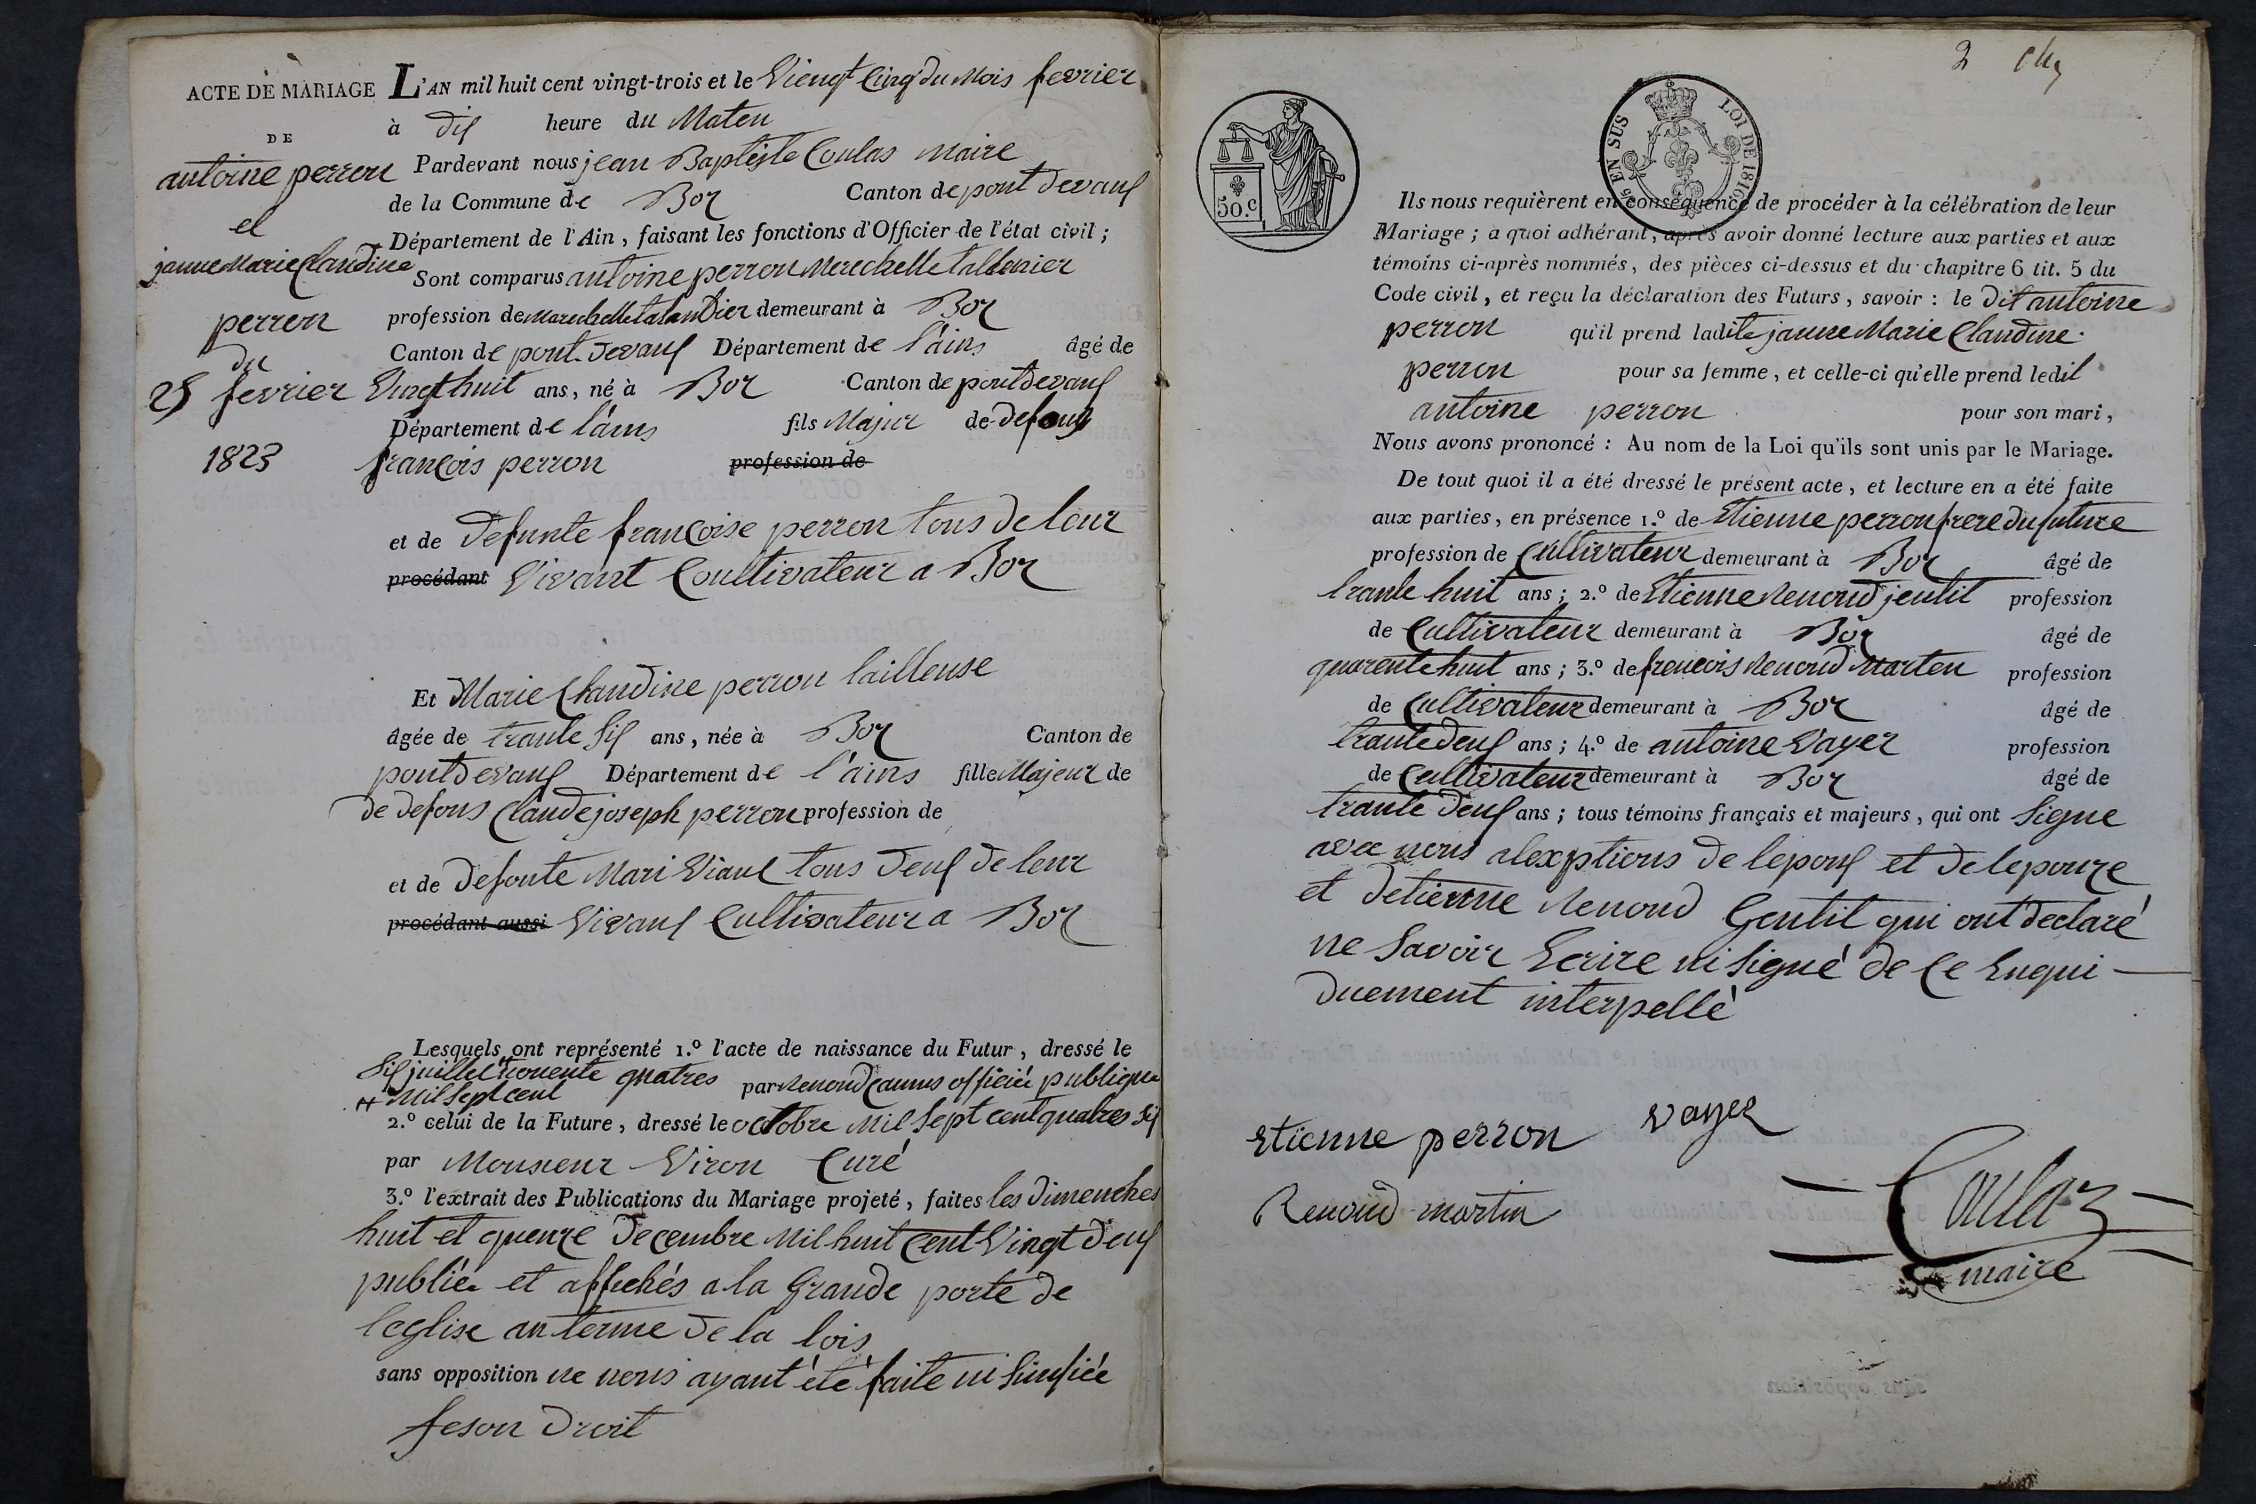 ACTE DE MARIAGE
DE
antoine perron
et
janne Marie Claudine
perron
du
25 fevrier
1823
L'AN mil huit cent vingt-trois et le Viengt Cinq du Mois fevrier
à dix heure du Maten
Pardevant nous jean Baptiste Coulas Maire
de la Commune de Boz Canton de pont devaux
Département de l'Ain, faisant les fonctions d'Officier de l'état civil ;
Sont comparus antoine perron
profession de demeurant à Boz
Canton de pont-devaux Département de l'ains âgé de
Vingt huit ans, né à Boz Canton de pontdevaux
Département de l'ains fils Majur de defons
françois perron profession de
et de defunte françoise perron tous de leur
procédant Vivant Coultivateur a Boz
Et Marie Claudine perron tailleuse
âgée de trante Six ans, née à Boz Canton de
pontdevaux Département de l'ains fille Majeur de
de defons Claude joseph perron profession de
et de defonte Mari Viaux tous deux de leur
procédant aussi Vivans Cultivateur a Boz
Lesquels ont représenté 1.º l'acte de naissance du Futur, dressé le
Six juillet # nonente quatres par Renoud Camus officié publique
# Mil Sept cent
2.º celui de la Future, dressé le octobre Mil Sept cent quatres Six
par Monsieur Viron Curé
3.º l'extrait des Publications du Mariage projeté, faites les dimenches
huit et quenze decembre Mil huit Cent Vingt deux
publiée et affichés a la Grande porte de
l'eglise au terme de la lois
sans opposition ne nous ayant été faite ni Sinifiée
feson droit
2
50.c
EN SUS
LOI DE 1816
Ils nous requièrent en conséquence de procéder à la célébration de leur
Mariage ; a quoi adhérant, après avoir donné lecture aux parties et aux
témoins ci-après nommés, des pièces ci-dessus et du chapitre 6 tit. 5 du
Code civil, et reçu la déclaration des Futurs, savoir : le dit antoine
perron qu'il prend ladite janne Marie Claudine
perron pour sa femme, et celle-ci qu'elle prend ledit
antoine perron pour son mari,
Nous avons prononcé : Au nom de la Loi qu'ils sont unis par le Mariage.
De tout quoi il a été dressé le présent acte, et lecture en a été faite
aux parties, en présence 1.º de Etienne perron frere du future
profession de Cultivateur demeurant à Boz âgé de
trante huit ans ; 2.º de Etienne Renoud jentit profession
de Cultivateur demeurant à Boz âgé de
quarente huit ans ; 3.º de frencois Renoud Marten profession
de Cultivateur demeurant à Boz âgé de
trante deux ans ; 4.º de antoine Vayer profession
de Cultivateur demeurant à Boz âgé de
trante deux ans ; tous témoins français et majeurs, qui ont Signe
avec nous alexptions de lepoux et de lepouze
et detienne Renoud Gentil qui ont declaré
ne Savoir Ecrire ni Signé de Ce Enqui
duement interpellè
Etienne perron
vayer
Renoud martin
Coulaz
maire